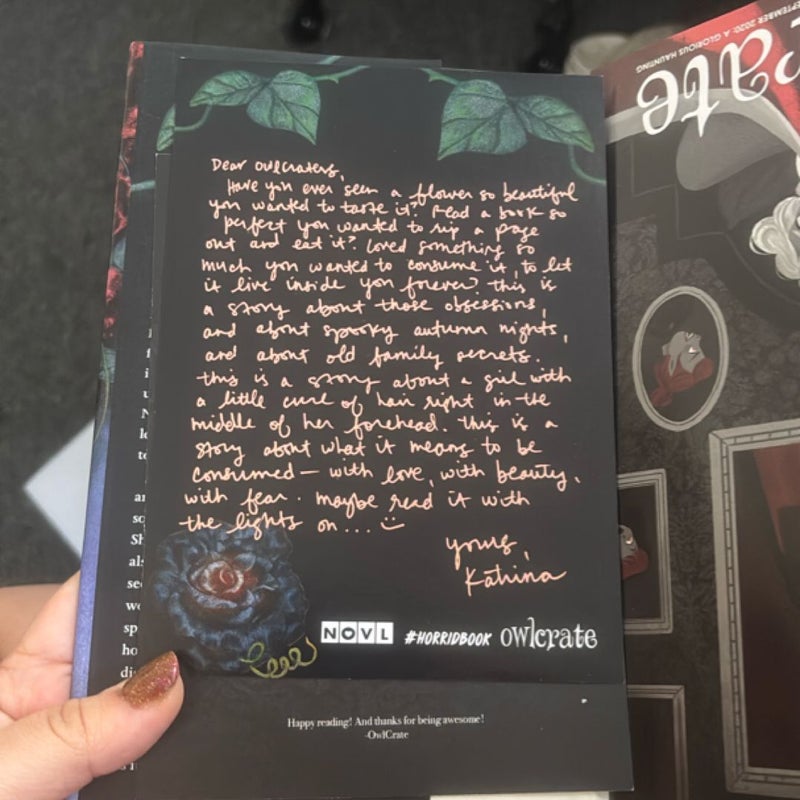 Dear owlcraters,
Have you ever seen a flower so beautiful
you wanted to taste it? Read a book so
perfect you wanted to rip a page
out and eat it? Loved something so
much you wanted to consume it, to let
it live inside you forever? this is
a story about those obsessions,
and about spooky autumn nights,
and about old family secrets.
this is a story about a girl with
a little curl of hair right in the
middle of her forehead. this is a
story about what it means to be
consumed — with love, with beauty,
with fear. maybe read it with
the lights on... :)
yours,
Katrina
NOVL #HORRIDBOOK owlcrate
Happy reading! And thanks for being awesome!
-OwlCrate
SEPTEMBER 2020: A GLORIOUS HAUNTING
ate